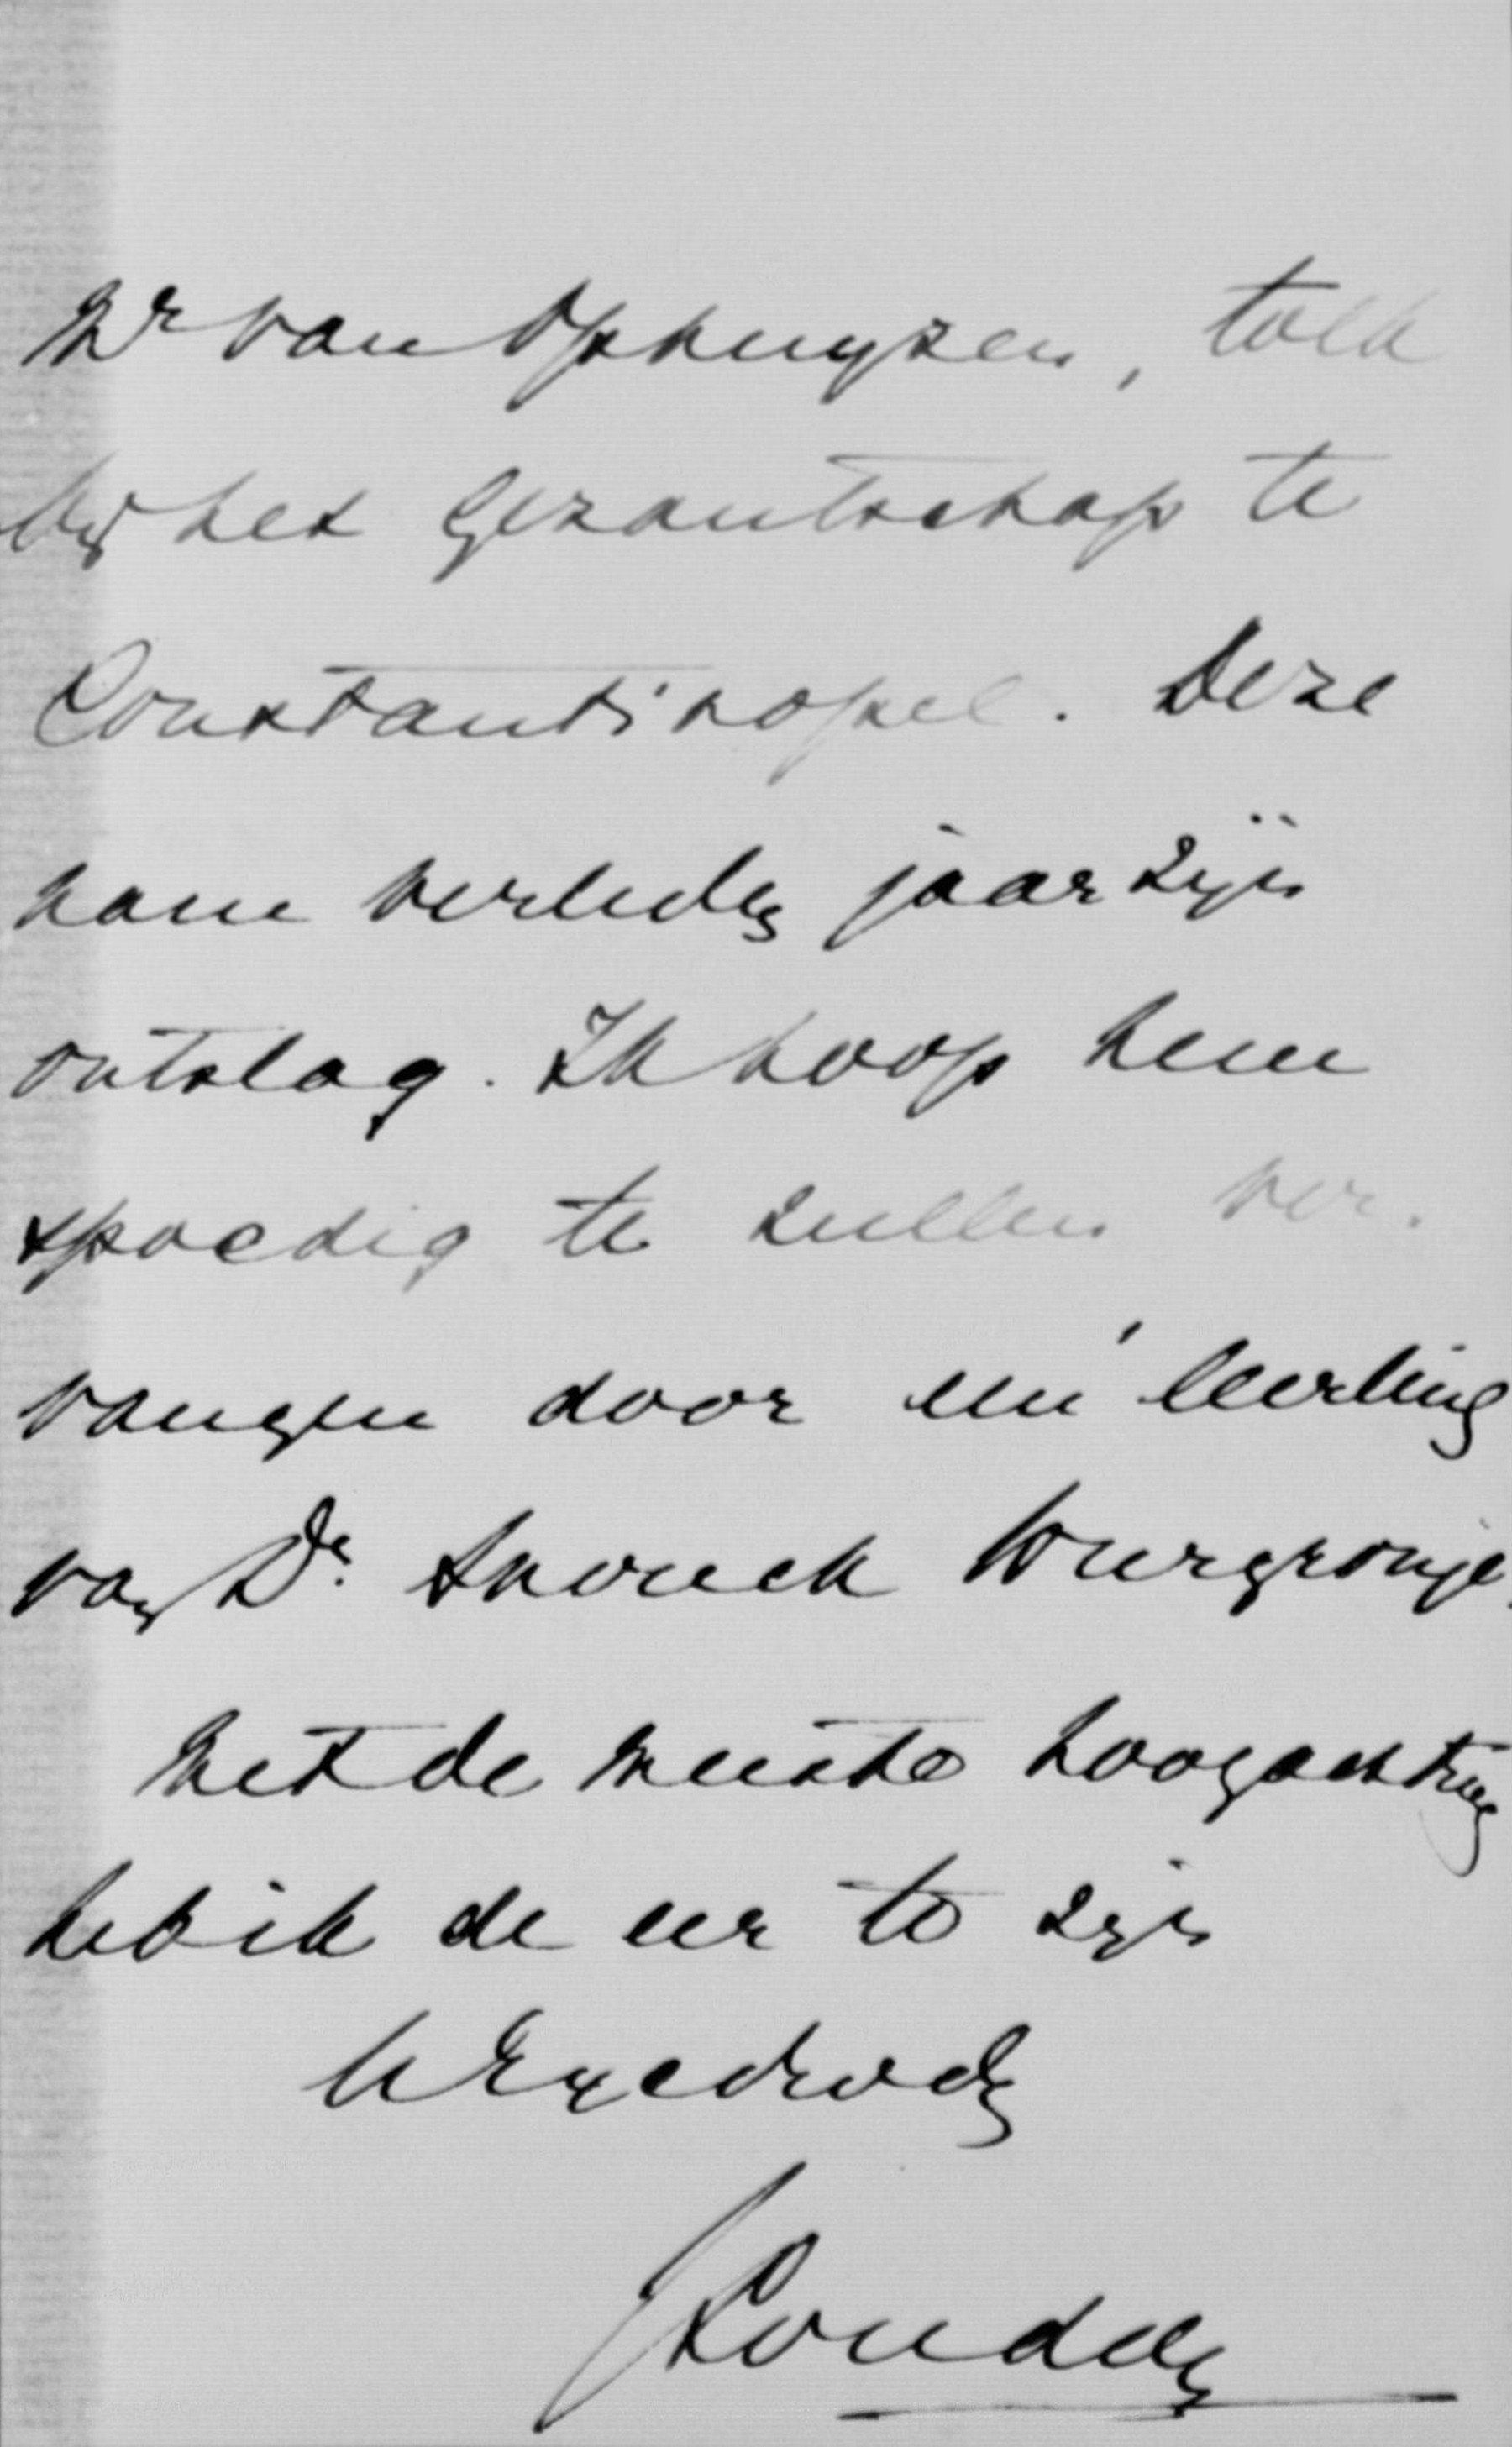 Mr van Ophuyzen, tolk
bij het Gezantschap te
Constantinopel. Deze
nam verleden jaar zijn
ontslag. Ik hoop hem
spoedig te zullen ver-
vangen door een leerling
van Dr. Snouck Hurgronje.
Met de meeste hoogachting
heb ik de eer te zijn
UwEgedwdn
Loudon